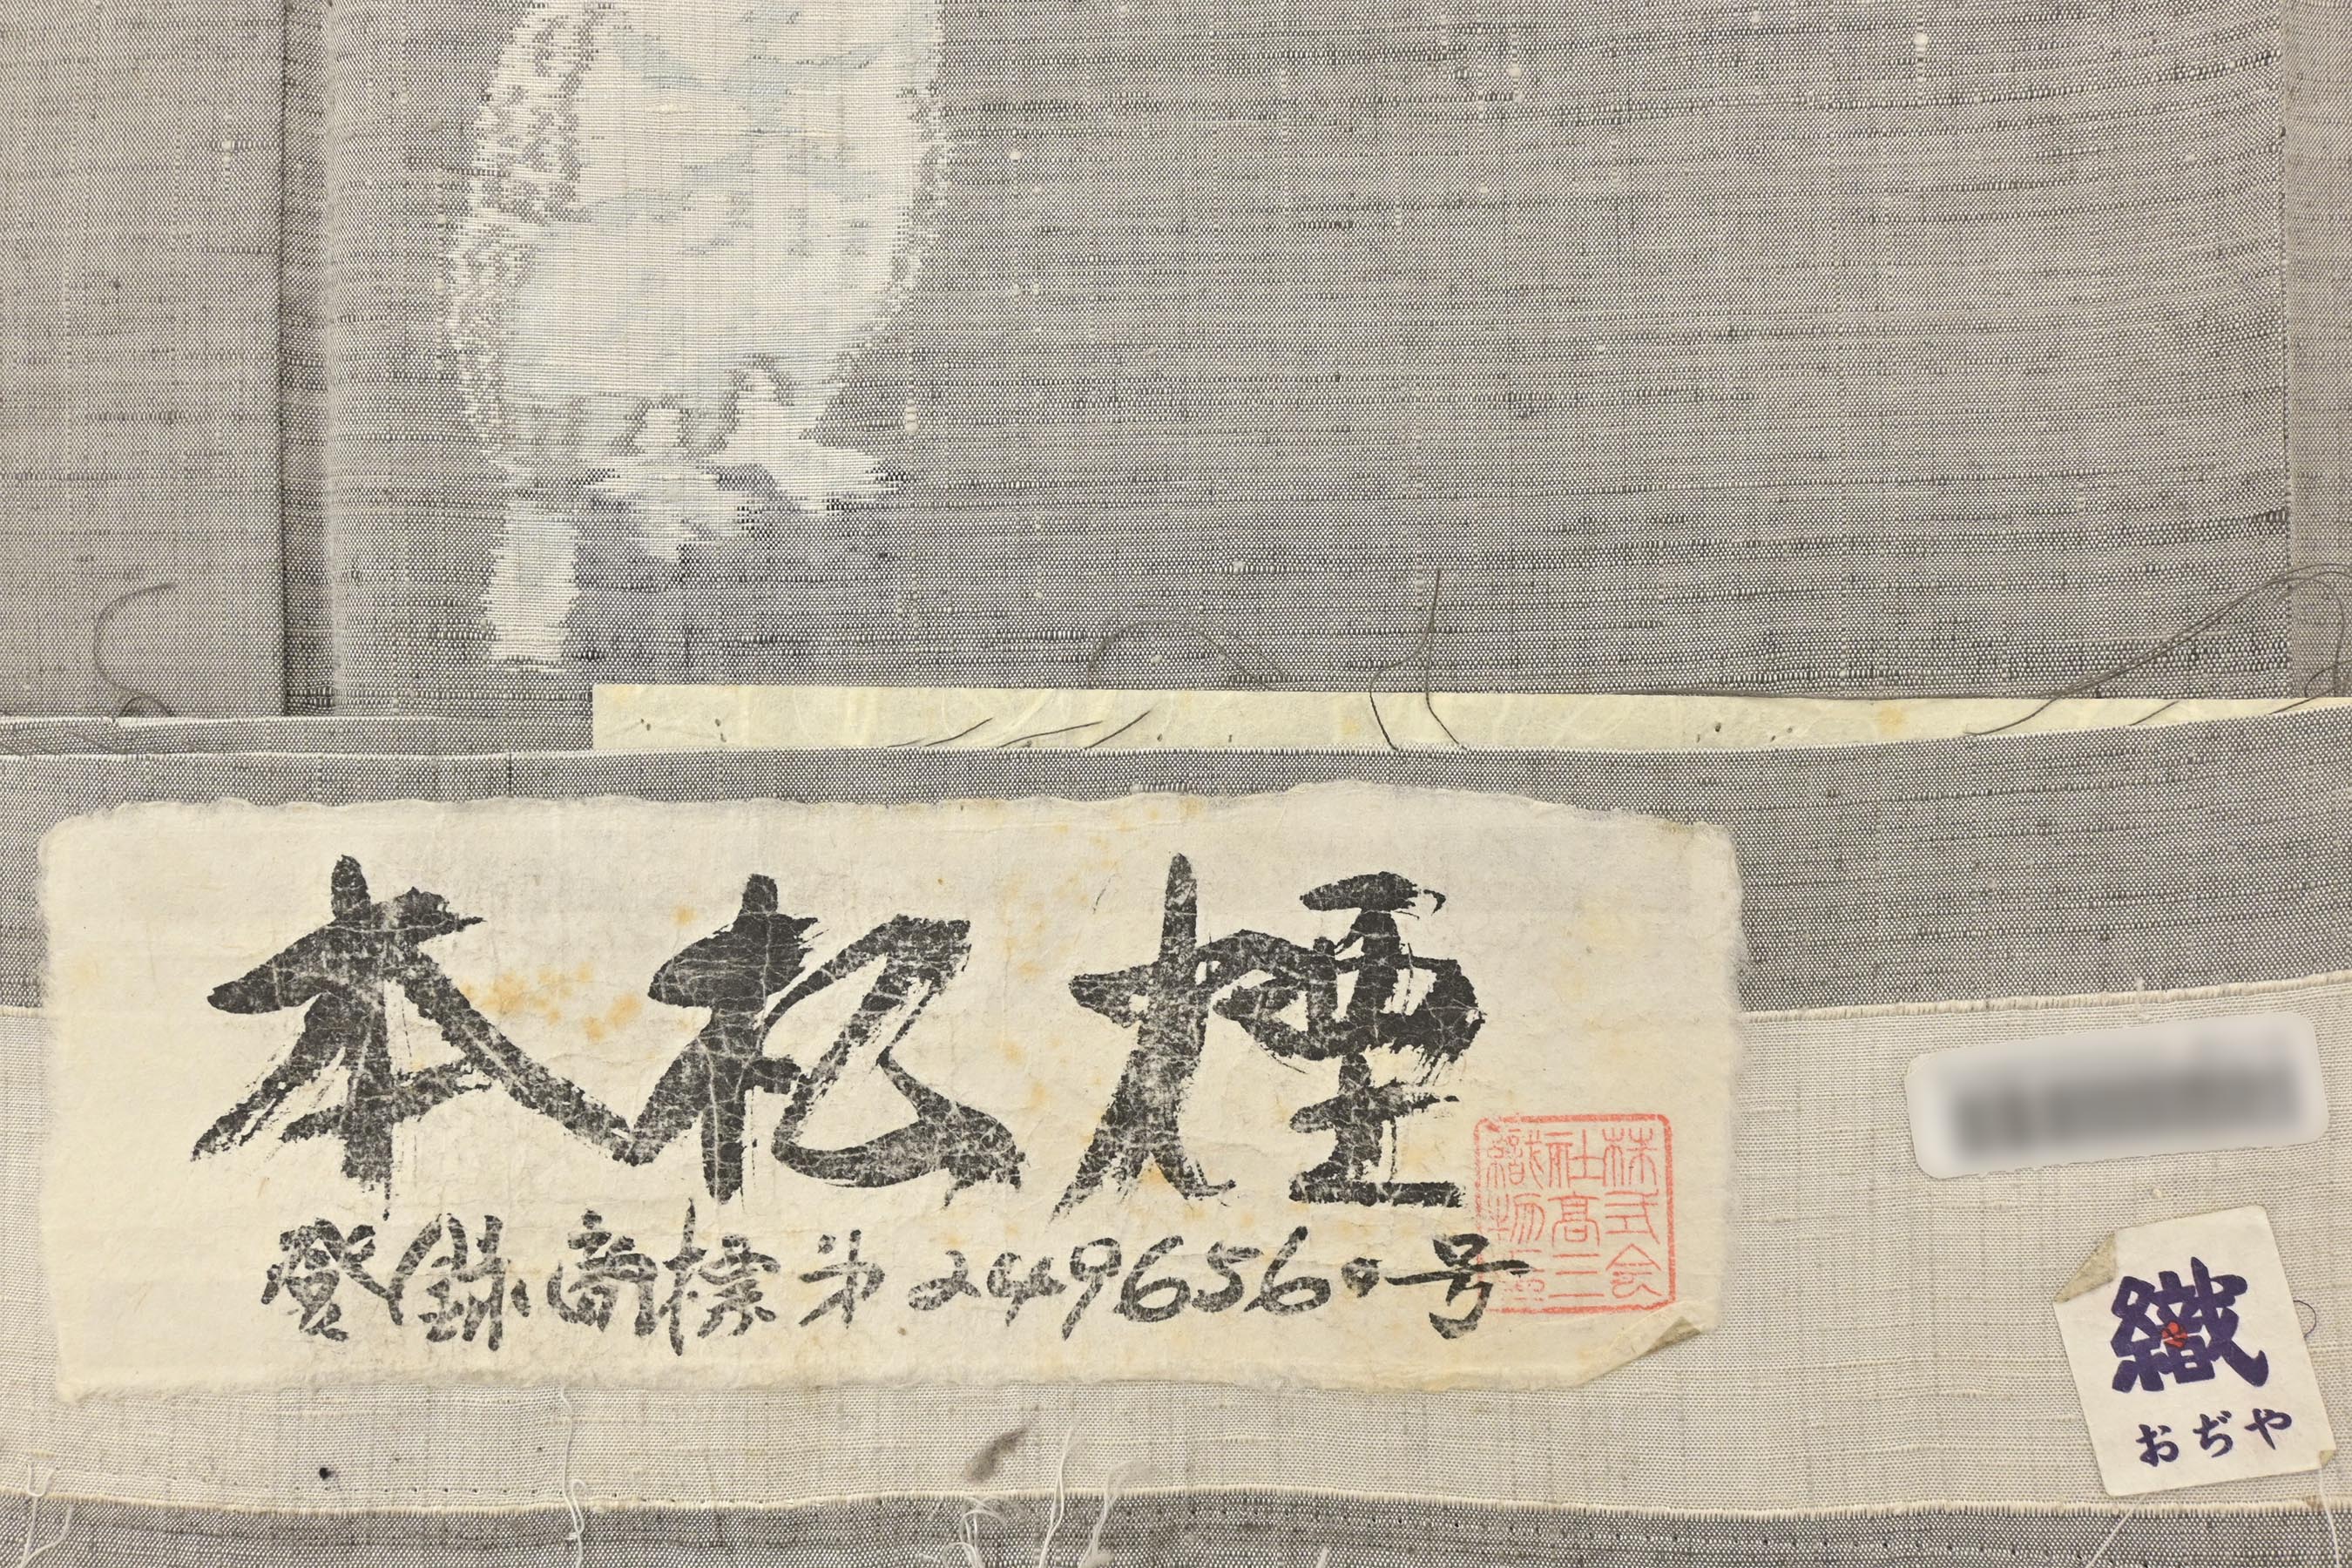 本松煙
登録商標第2496560号
株式会
社高三
織物
織
おぢや